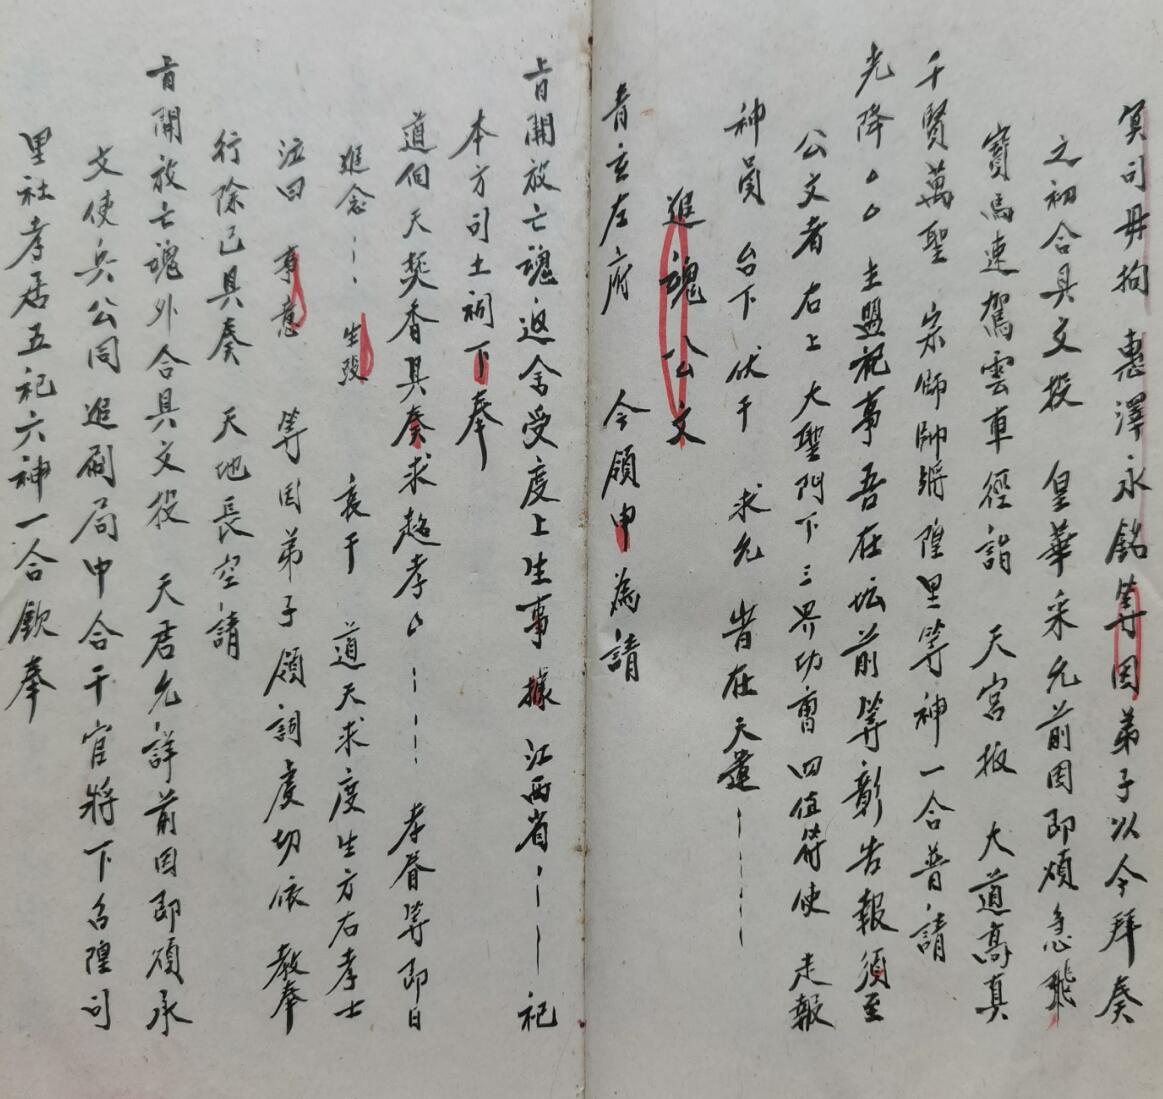 冥司毋拘 惠澤永銘等因弟子以今拜奏
之初合具文投 皇華采允前因即煩急飛
寶馬連駕雲車徑詣 天宮报 大道高真
千賢萬聖 宗師帥將隍里等神一合普請
光降㇔㇔ 主盟祀事吾在坛前等彰告報須至
公文者右上 大聖門下三界功曹四值符使 走報
神員 台下 伏干 求允 眥在天運
追魂公文
青玄左府 今領申為請
旨開放亡魂返舍受度上生事據 江西省 祀
本方司土祠下奉
道伯天焚香具奏求超孝 孝眷等即日
進念 生歿 哀干 道天求度生方右孝士
泣曰 事意 等因弟子領詞虔切依 教奉
行除已具奏 天地長空請
旨開放亡魂外合具文投 天君允詳前因即煩承
文使兵公同追刷局中合干官將下台隍司
里社孝居五祀六神一合欽奉